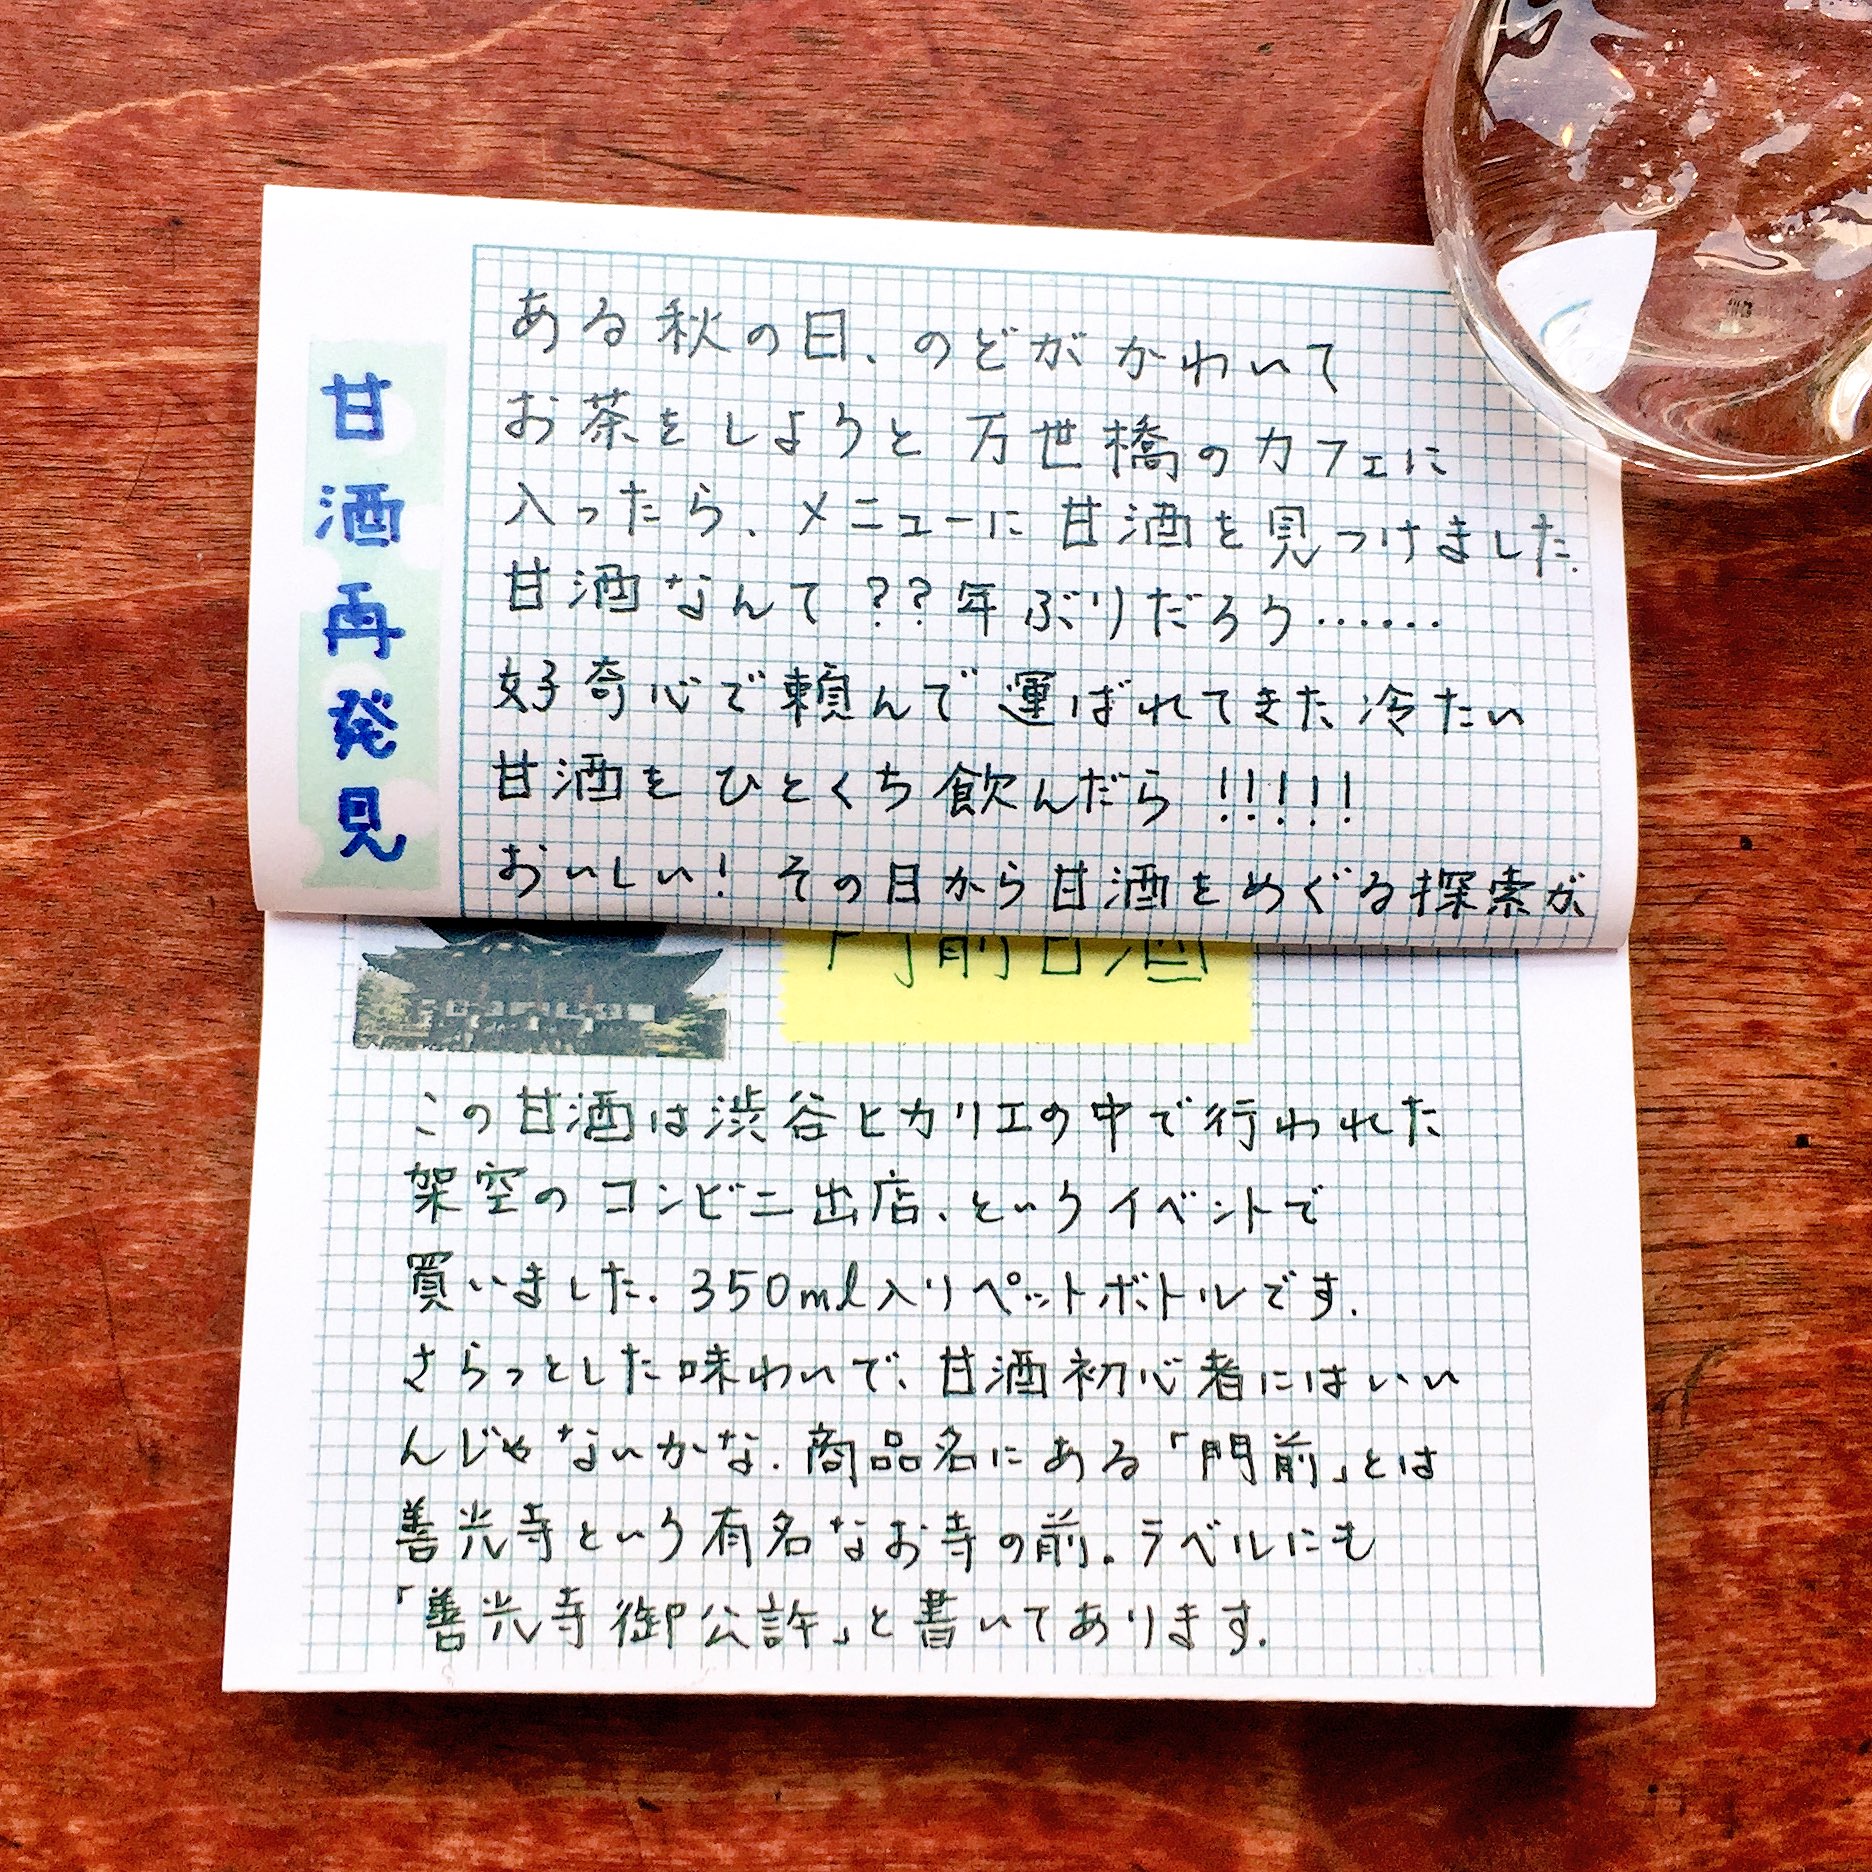 甘酒再発見
ある秋の日、のどがかわいて
お茶をしようと万世橋のカフェに
入ったら、メニューに甘酒を見つけました.
甘酒なんて??年ぶりだろう……
好奇心で頼んで運ばれてきた冷たい
甘酒をひとくち飲んだら!!!!!
おいしい!その日から甘酒をめぐる探索が
門前甘酒
この甘酒は渋谷ヒカリエの中で行われた
架空のコンビニ出店、というイベントで
買いました.350ml入りペットボトルです.
さらっとした味わいで、甘酒初心者にはいい
んじゃないかな.商品名にある「門前」とは
善光寺という有名なお寺の前。ラベルにも
「善光寺御公許」と書いてあります.